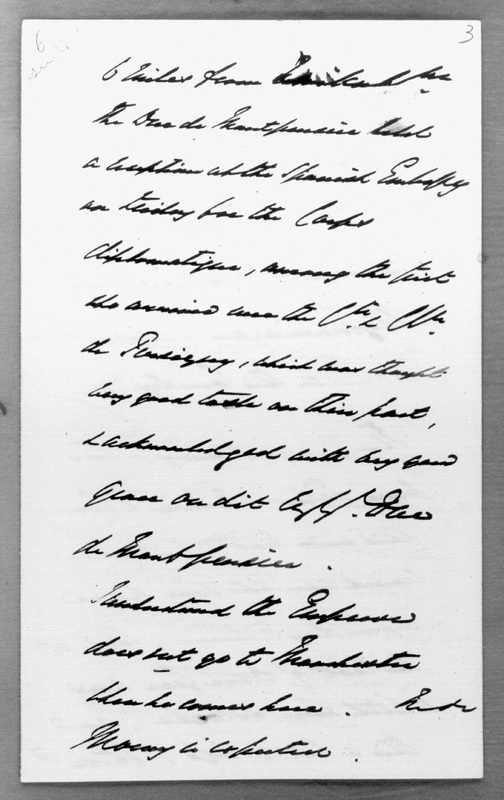 6
3
6 Miles from
The Duc de Montpensier held
a reception at the Spanish Embassy
on Friday for the Corps
diplomatique, among the first
who arrived were the Cte & Ctsse
de Persigny, which was thought
very good taste on their part,
& acknowledged with very good
grace on dit by the Duc
de Montpensier.
I understand the Emperor
does not go to Manchester
when he comes here. M. de
Morny is expected.